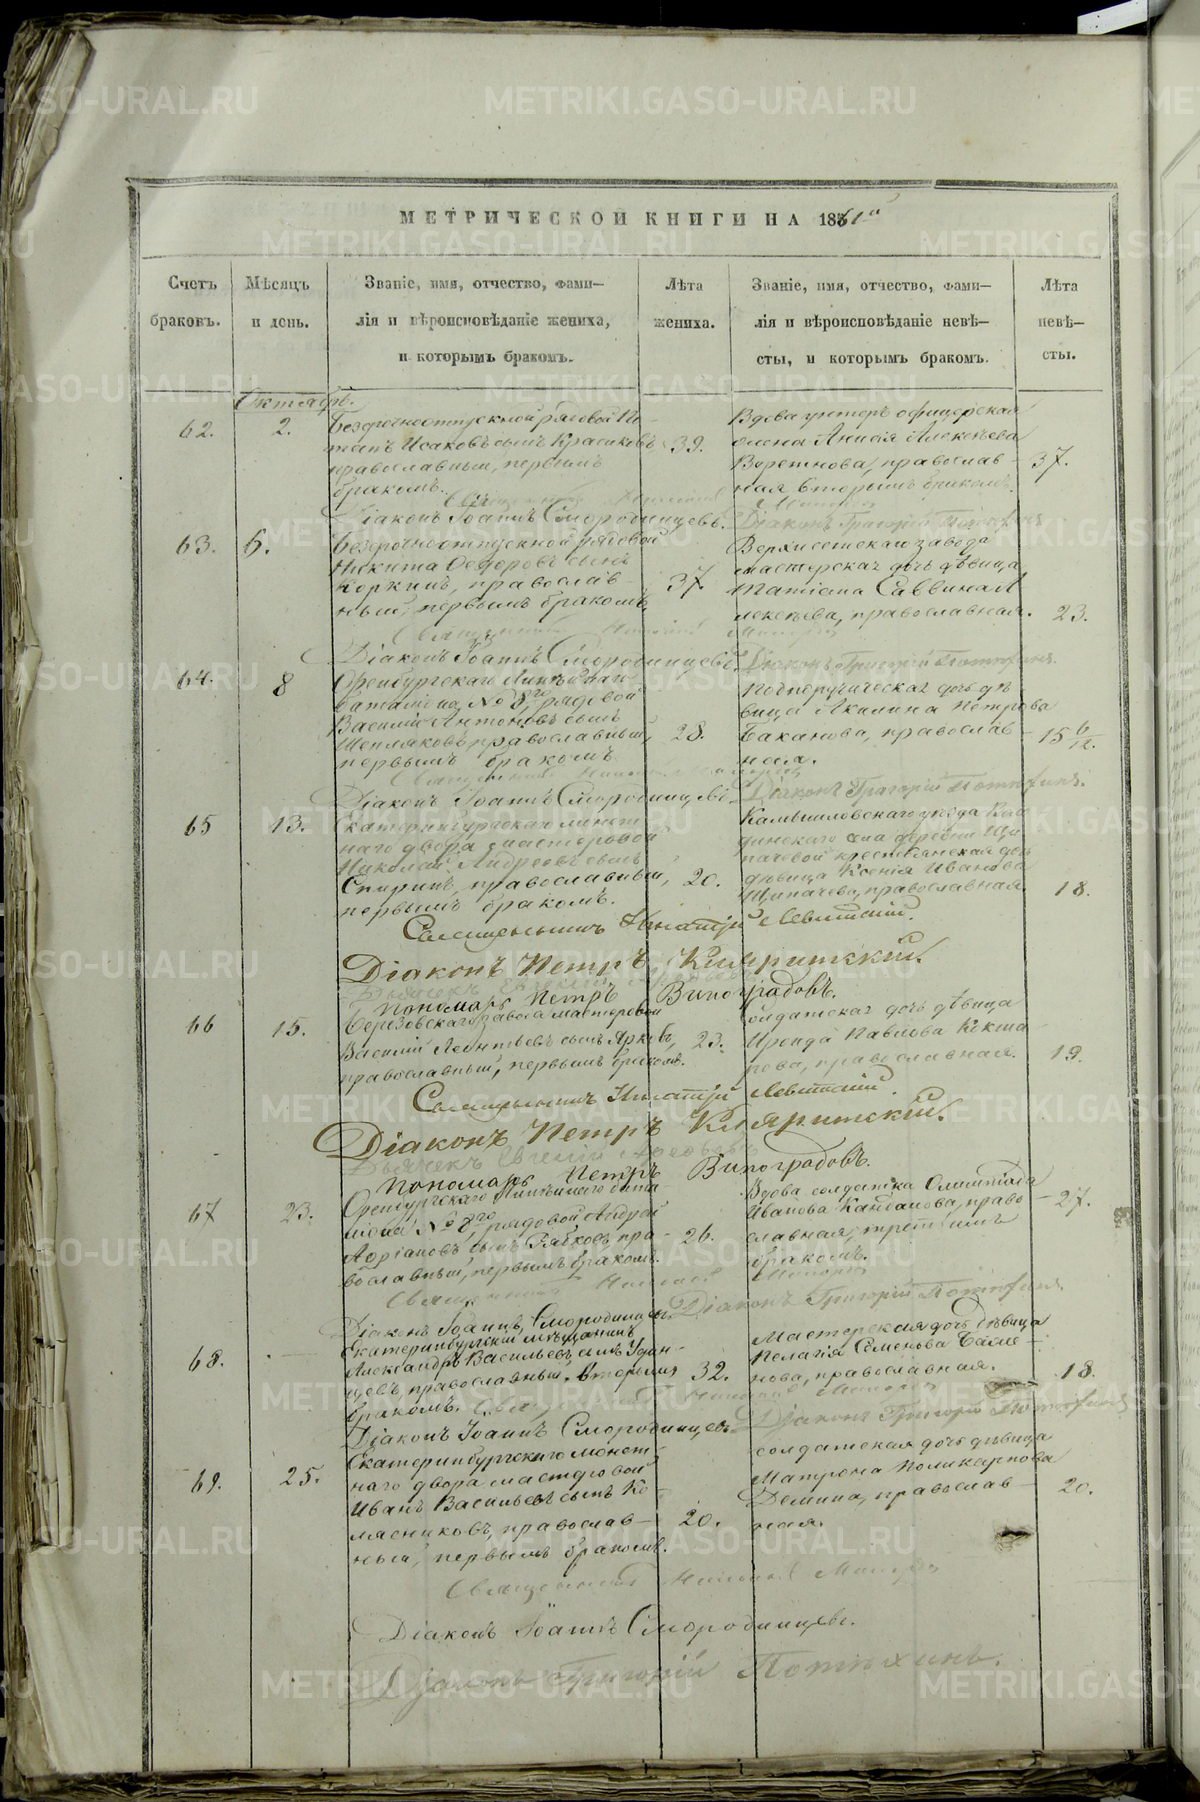 МЕТРИЧЕСКОЙ КНИГИ НА 1861й
Счетъ браковъ.
Мѣсяцъ и день.
Званіе, имя, отчество, фами—
лія и вѣроисповѣданіе жениха,
и которымъ бракомъ.
Лѣта жениха.
Званіе, имя, отчество, фами—
лія и вѣроисповѣданіе невѣ—
сты, и которымъ бракомъ.
Лѣта невѣ—
сты.
Октябрь.
62.
2.
Безсрочноотпускной рядовой По-
тапъ Исаковъ сынъ Красиковъ
православный, первымъ
бракомъ.
39.
Вдова унтеръ офицерская
жена Анисія Алексѣева
православ—
ная вторымъ бракомъ.
37.
Священник
Діаконъ Іоаннъ Смородинцевъ.
Діаконъ Григорій Потѣхинъ
63.
6.
Безсрочноотпускной рядовой
Никита Ѳедоровъ сынъ
Коркинъ, православ—
ный, первымъ бракомъ,
37
Верхисетскаго завода
мастерская дочь дѣвица
Татіана Саввина А
лексѣева, православная.
23.
Священник
Діаконъ Іоаннъ Смородинцевъ.
Діаконъ Григорій Потѣхинъ.
64.
8
Оренбургскаго Линѣйнаго
баталіона № 8го, рядовой
Василій Антоновъ сынъ
Шепляковъ, православный,
первымъ бракомъ
28.
Подпоручическая дочь дѣ
вица Акилина Петрова
Баканова, православ—
ная.
15 6/12.
Священник
Діаконъ Іоаннъ Смородинцевъ
Діаконъ Григорій Потѣхинъ.
65
13.
Екатеринбургскаго монет—
наго двора мастеровой
Николай Андреевъ сынъ
Спиринъ, православный,
первымъ бракомъ.
20.
Камышловскаго уѣзда
села деревни Щи
пачевой крестьянская дочь
дѣвица Ксенія Иванова
Щипачева, православная.
18.
Священникъ Игнатій Левитскій.
Діаконъ Петръ
Пономарь Петръ Виноградовъ.
66
15.
Березовскаго завода мастеровой
Василій Леонтьевъ сынъ Ярковъ,
православный, первымъ бракомъ.
23.
Солдатская дочь дѣвица
Ираида Павлова Кокша
рова, православная.
19.
Священникъ Игнатій Левитскій
Діаконъ Петръ
Дьячекъ Евгеній
Пономарь Петръ Виноградовъ.
67
23.
Оренбургскаго Линѣйнаго бата
ліона № 8го, рядовой Андрей
Адріановъ сынъ Рябковъ, пра—
вославный, первымъ бракомъ.
26.
Вдова солдатка Олимпіада
Иванова Канданова, право
славная, третьимъ
бракомъ.
27.
Священник
Діаконъ Іоаннъ Смородинцевъ.
Діаконъ Григорій Потѣхинъ.
68.
Екатеринбургскій мѣщанинъ
Александръ Васильевъ сынъ Удин—
цевъ, православный, вторымъ
бракомъ.
32.
Мастерская дочь дѣвица
Пелагія Семенова
нова, православная.
18.
Діаконъ Іоаннъ Смородинцевъ
Діаконъ Григорій Потѣхинъ
69.
25.
Екатеринбургскаго монет—
наго двора мастеровой
Иванъ Васильевъ сынъ Ко—
лясниковъ, православ—
ный, первымъ бракомъ.
20.
Солдатская дочь дѣвица
Матрона Поликарпова
Демина, православ—
ная.
20.
Священник
Діаконъ Іоаннъ Смородинцевъ.
Діаконъ Григорій Потѣхинъ.
METRIKI.GASO-URAL.RU